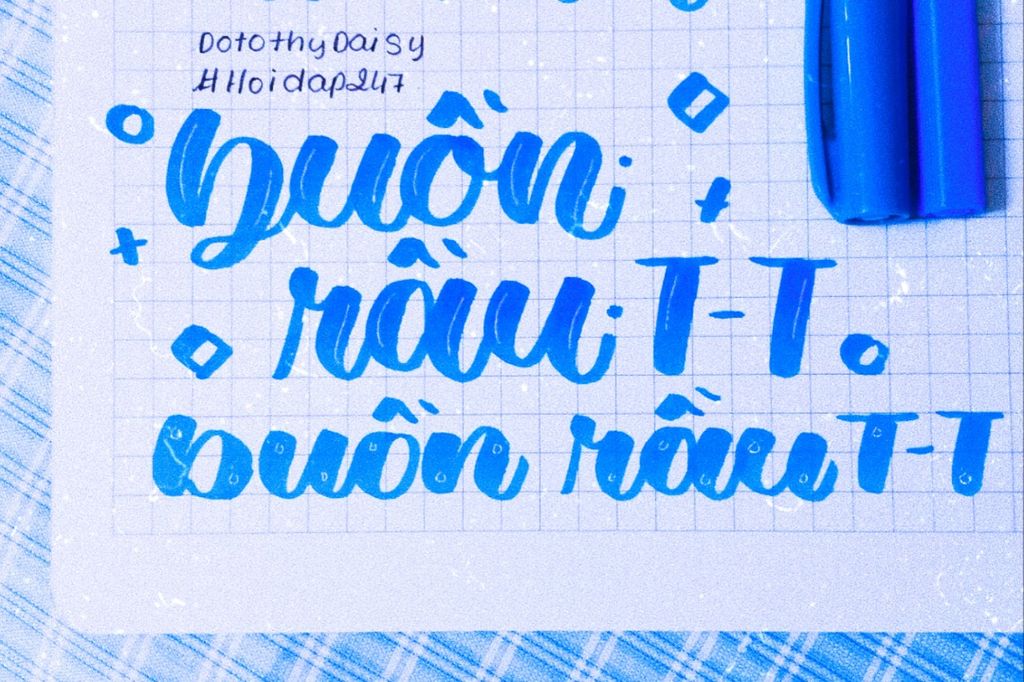 DotothyDaisy
#Hoidap247
buồn
rầu T-T
buồn rầu T-T